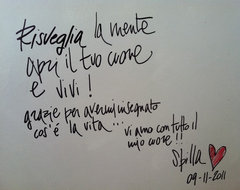 Risveglia la mente
apri il tuo cuore
e vivi!
grazie per avermi insegnato
cos'é la vita... vi amo con tutto il
mio cuore!!
Sbilla
09-11-2011